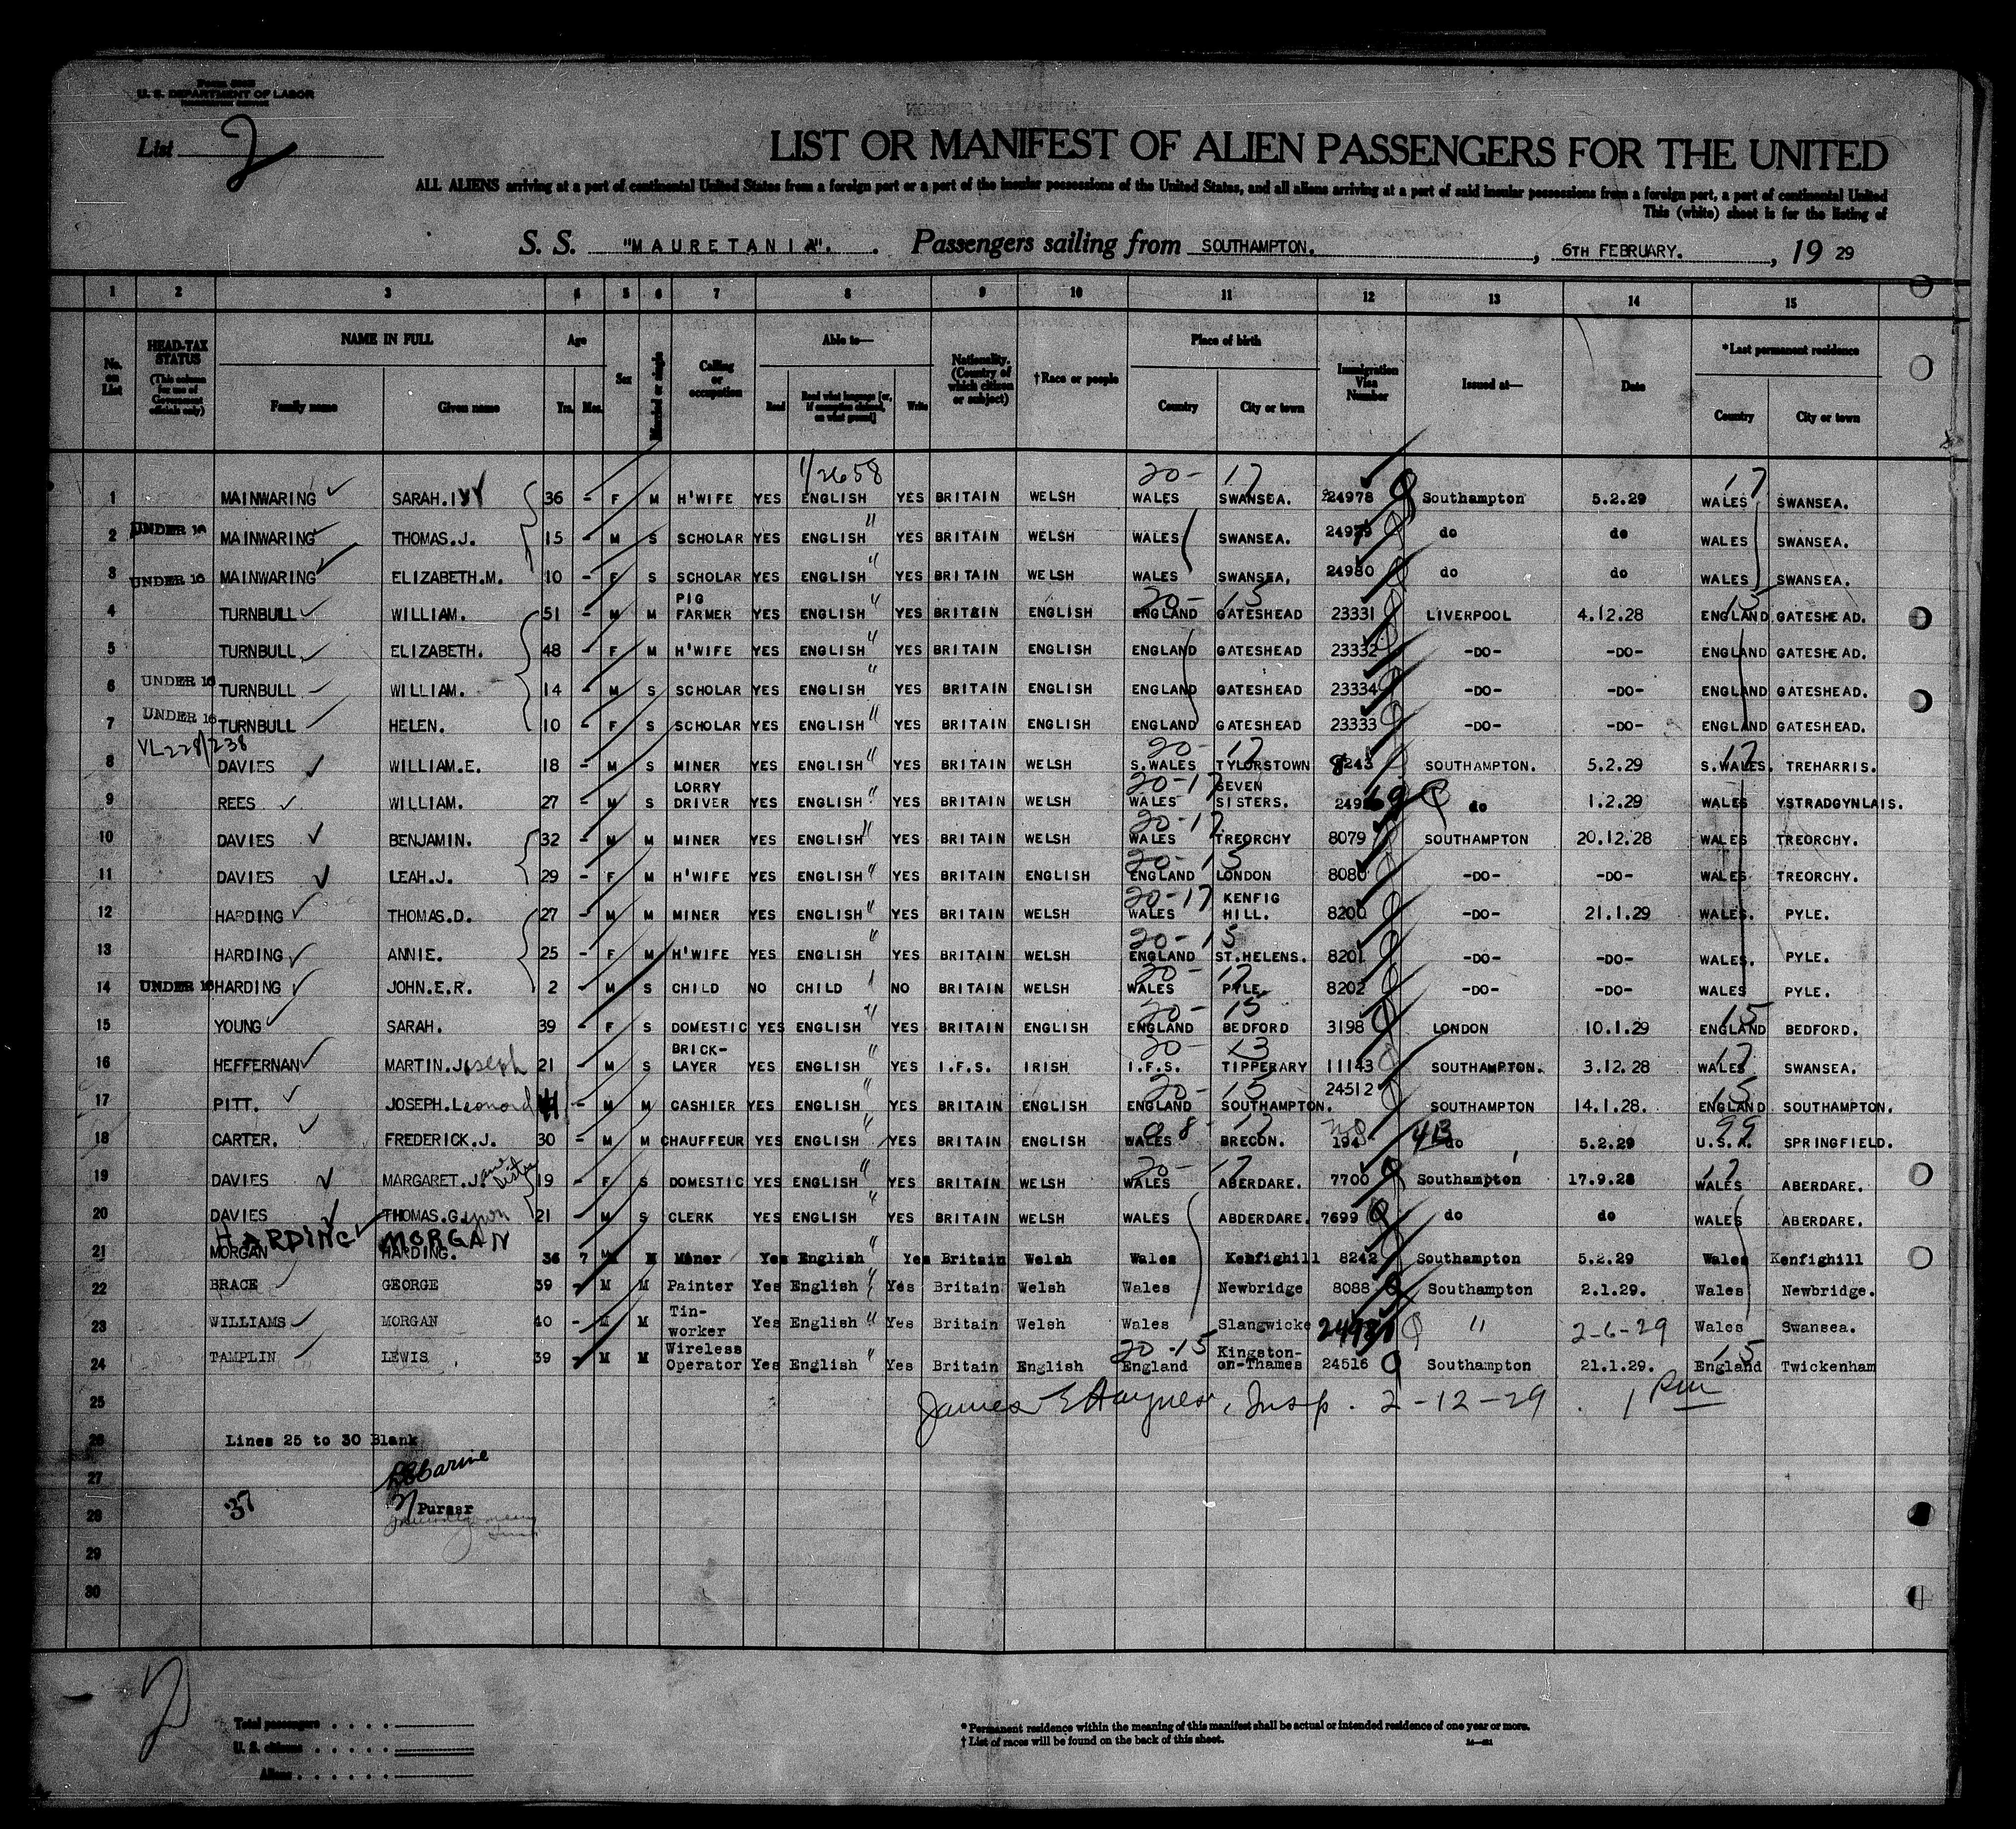 U. S. DEPARTMENT OF LABOR
List 2
LIST OR MANIFEST OF ALIEN PASSENGERS FOR THE UNITED
ALL ALIENS arriving at a port of continental United States from a foreign port or a port of the insular possessions of the United States, and all aliens arriving at a port of said insular possessions from a foreign port, a port of continental United
This (white) sheet is for the listing of
S. S. "MAURETANIA". Passengers sailing from SOUTHAMPTON. , 6TH FEBRUARY. , 19 29
1 2 3 4 5 6 7 8 9 10 11 12 13 14 15
No. on List HEAD-TAX STATUS (This column for use of Government officials only) NAME IN FULL Family name Given name Age Yrs. Mos. Sex Married or single Calling or occupation Able to— Read Read what language [or, if exemption claimed, on what ground] Write Nationality. (Country of which citizen or subject) †Race or people Place of birth Country City or town Immigration Visa Number Issued at— Date *Last permanent residence Country City or town
20- 17 17
1 MAINWARING SARAH.I 36 - F M H'WIFE YES ENGLISH YES BRITAIN WELSH WALES SWANSEA. 24978 Southampton 5.2.29 WALES SWANSEA.
2 UNDER 16 MAINWARING THOMAS.J. 15 - M S SCHOLAR YES ENGLISH " YES BRITAIN WELSH WALES SWANSEA. 24979 do do WALES SWANSEA.
3 UNDER 16 MAINWARING ELIZABETH.M. 10 - F S SCHOLAR YES ENGLISH " YES BRITAIN WELSH WALES SWANSEA. 24980 do do WALES SWANSEA.
20- 15 15
4 TURNBULL WILLIAM. 51 - M M PIG FARMER YES ENGLISH " YES BRITAIN ENGLISH ENGLAND GATESHEAD 23331 LIVERPOOL 4.12.28 ENGLAND GATESHEAD.
5 TURNBULL ELIZABETH. 48 - F M H'WIFE YES ENGLISH " YES BRITAIN ENGLISH ENGLAND GATESHEAD 23332 -DO- -DO- ENGLAND GATESHEAD.
6 UNDER 16 TURNBULL WILLIAM. 14 - M S SCHOLAR YES ENGLISH " YES BRITAIN ENGLISH ENGLAND GATESHEAD 23334 -DO- -DO- ENGLAND GATESHEAD.
7 UNDER 16 TURNBULL HELEN. 10 - F S SCHOLAR YES ENGLISH " YES BRITAIN ENGLISH ENGLAND GATESHEAD 23333 -DO- -DO- ENGLAND GATESHEAD.
VL228/238 20- 17 17
8 DAVIES WILLIAM.E. 18 - M S MINER YES ENGLISH " YES BRITAIN WELSH S.WALES TYLORSTOWN 8243 SOUTHAMPTON. 5.2.29 S.WALES. TREHARRIS.
20-17
9 REES WILLIAM. 27 - M S LORRY DRIVER YES ENGLISH " YES BRITAIN WELSH WALES SEVEN SISTERS. do 1.2.29 WALES YSTRADGYNLAIS.
20-17
10 DAVIES BENJAMIN. 32 - M M MINER YES ENGLISH " YES BRITAIN WELSH WALES TREORCHY 8079 SOUTHAMPTON 20.12.28 WALES TREORCHY.
20-15
11 DAVIES LEAH.J. 29 - F M H'WIFE YES ENGLISH " YES BRITAIN ENGLISH ENGLAND LONDON 8080 -DO- -DO- WALES TREORCHY.
20-17
12 HARDING THOMAS.D. 27 - M M MINER YES ENGLISH " YES BRITAIN WELSH WALES KENFIG HILL. 8200 -DO- 21.1.29 WALES. PYLE.
20-15
13 HARDING ANNIE. 25 - F M H'WIFE YES ENGLISH " YES BRITAIN WELSH ENGLAND ST.HELENS. 8201 -DO- -DO- WALES. PYLE.
20- 17
14 UNDER 16 HARDING JOHN.E.R. 2 - M S CHILD NO CHILD NO BRITAIN WELSH WALES PYLE. 8202 -DO- -DO- WALES PYLE.
20- 15 15
15 YOUNG SARAH. 39 - F S DOMESTIC YES ENGLISH " YES BRITAIN ENGLISH ENGLAND BEDFORD 3198 LONDON 10.1.29 ENGLAND BEDFORD.
20- 13 17
16 HEFFERNAN MARTIN.Joseph 21 - M S BRICK-LAYER YES ENGLISH " YES I.F.S. IRISH I.F.S. TIPPERARY 11143 SOUTHAMPTON. 3.12.28 WALES SWANSEA.
20- 15 15
17 PITT. JOSEPH.Leonard 41 - M M CASHIER YES ENGLISH " YES BRITAIN ENGLISH ENGLAND SOUTHAMPTON. 24512 SOUTHAMPTON 14.1.28. ENGLAND SOUTHAMPTON.
17 99
18 CARTER. FREDERICK.J. 30 - M M CHAUFFEUR YES ENGLISH " YES BRITAIN ENGLISH WALES BRECON. 194 do 5.2.29 U.S.A. SPRINGFIELD.
20- 17 17
19 DAVIES MARGARET.Jane sister 19 - F S DOMESTIC YES ENGLISH " YES BRITAIN WELSH WALES ABERDARE. 7700 Southampton 17.9.28 WALES ABERDARE.
20 DAVIES THOMAS.G 21 - M S CLERK YES ENGLISH " YES BRITAIN WELSH WALES ABDERDARE. 7699 do do WALES ABERDARE.
HARDING MORGAN
21 MORGAN HARDING. 36 7 M M Miner Yes English " Yes Britain Welsh Wales Kenfighill 8242 Southampton 5.2.29 Wales Kenfighill
22 BRACE GEORGE 39 - M M Painter Yes English " Yes Britain Welsh Wales Newbridge 8088 Southampton 2.1.29. Wales Newbridge.
23 WILLIAMS MORGAN 40 - M M Tin-worker Yes English " Yes Britain Welsh Wales Slangwicke " 2-6-29 Wales Swansea.
20-15 15
24 TAMPLIN LEWIS 39 - M M Wireless Operator Yes English " Yes Britain English England Kingston-on-Thames 24516 Southampton 21.1.29. England Twickenham
25 James E Haynes, Insp. 2-12-29. 1 PM
26 Lines 25 to 30 Blank
27
28 37 Purser
29
30
2
Total passengers
U. S. citizens
Aliens
*Permanent residence within the meaning of this manifest shall be actual or intended residence of one year or more.
†List of races will be found on the back of this sheet.